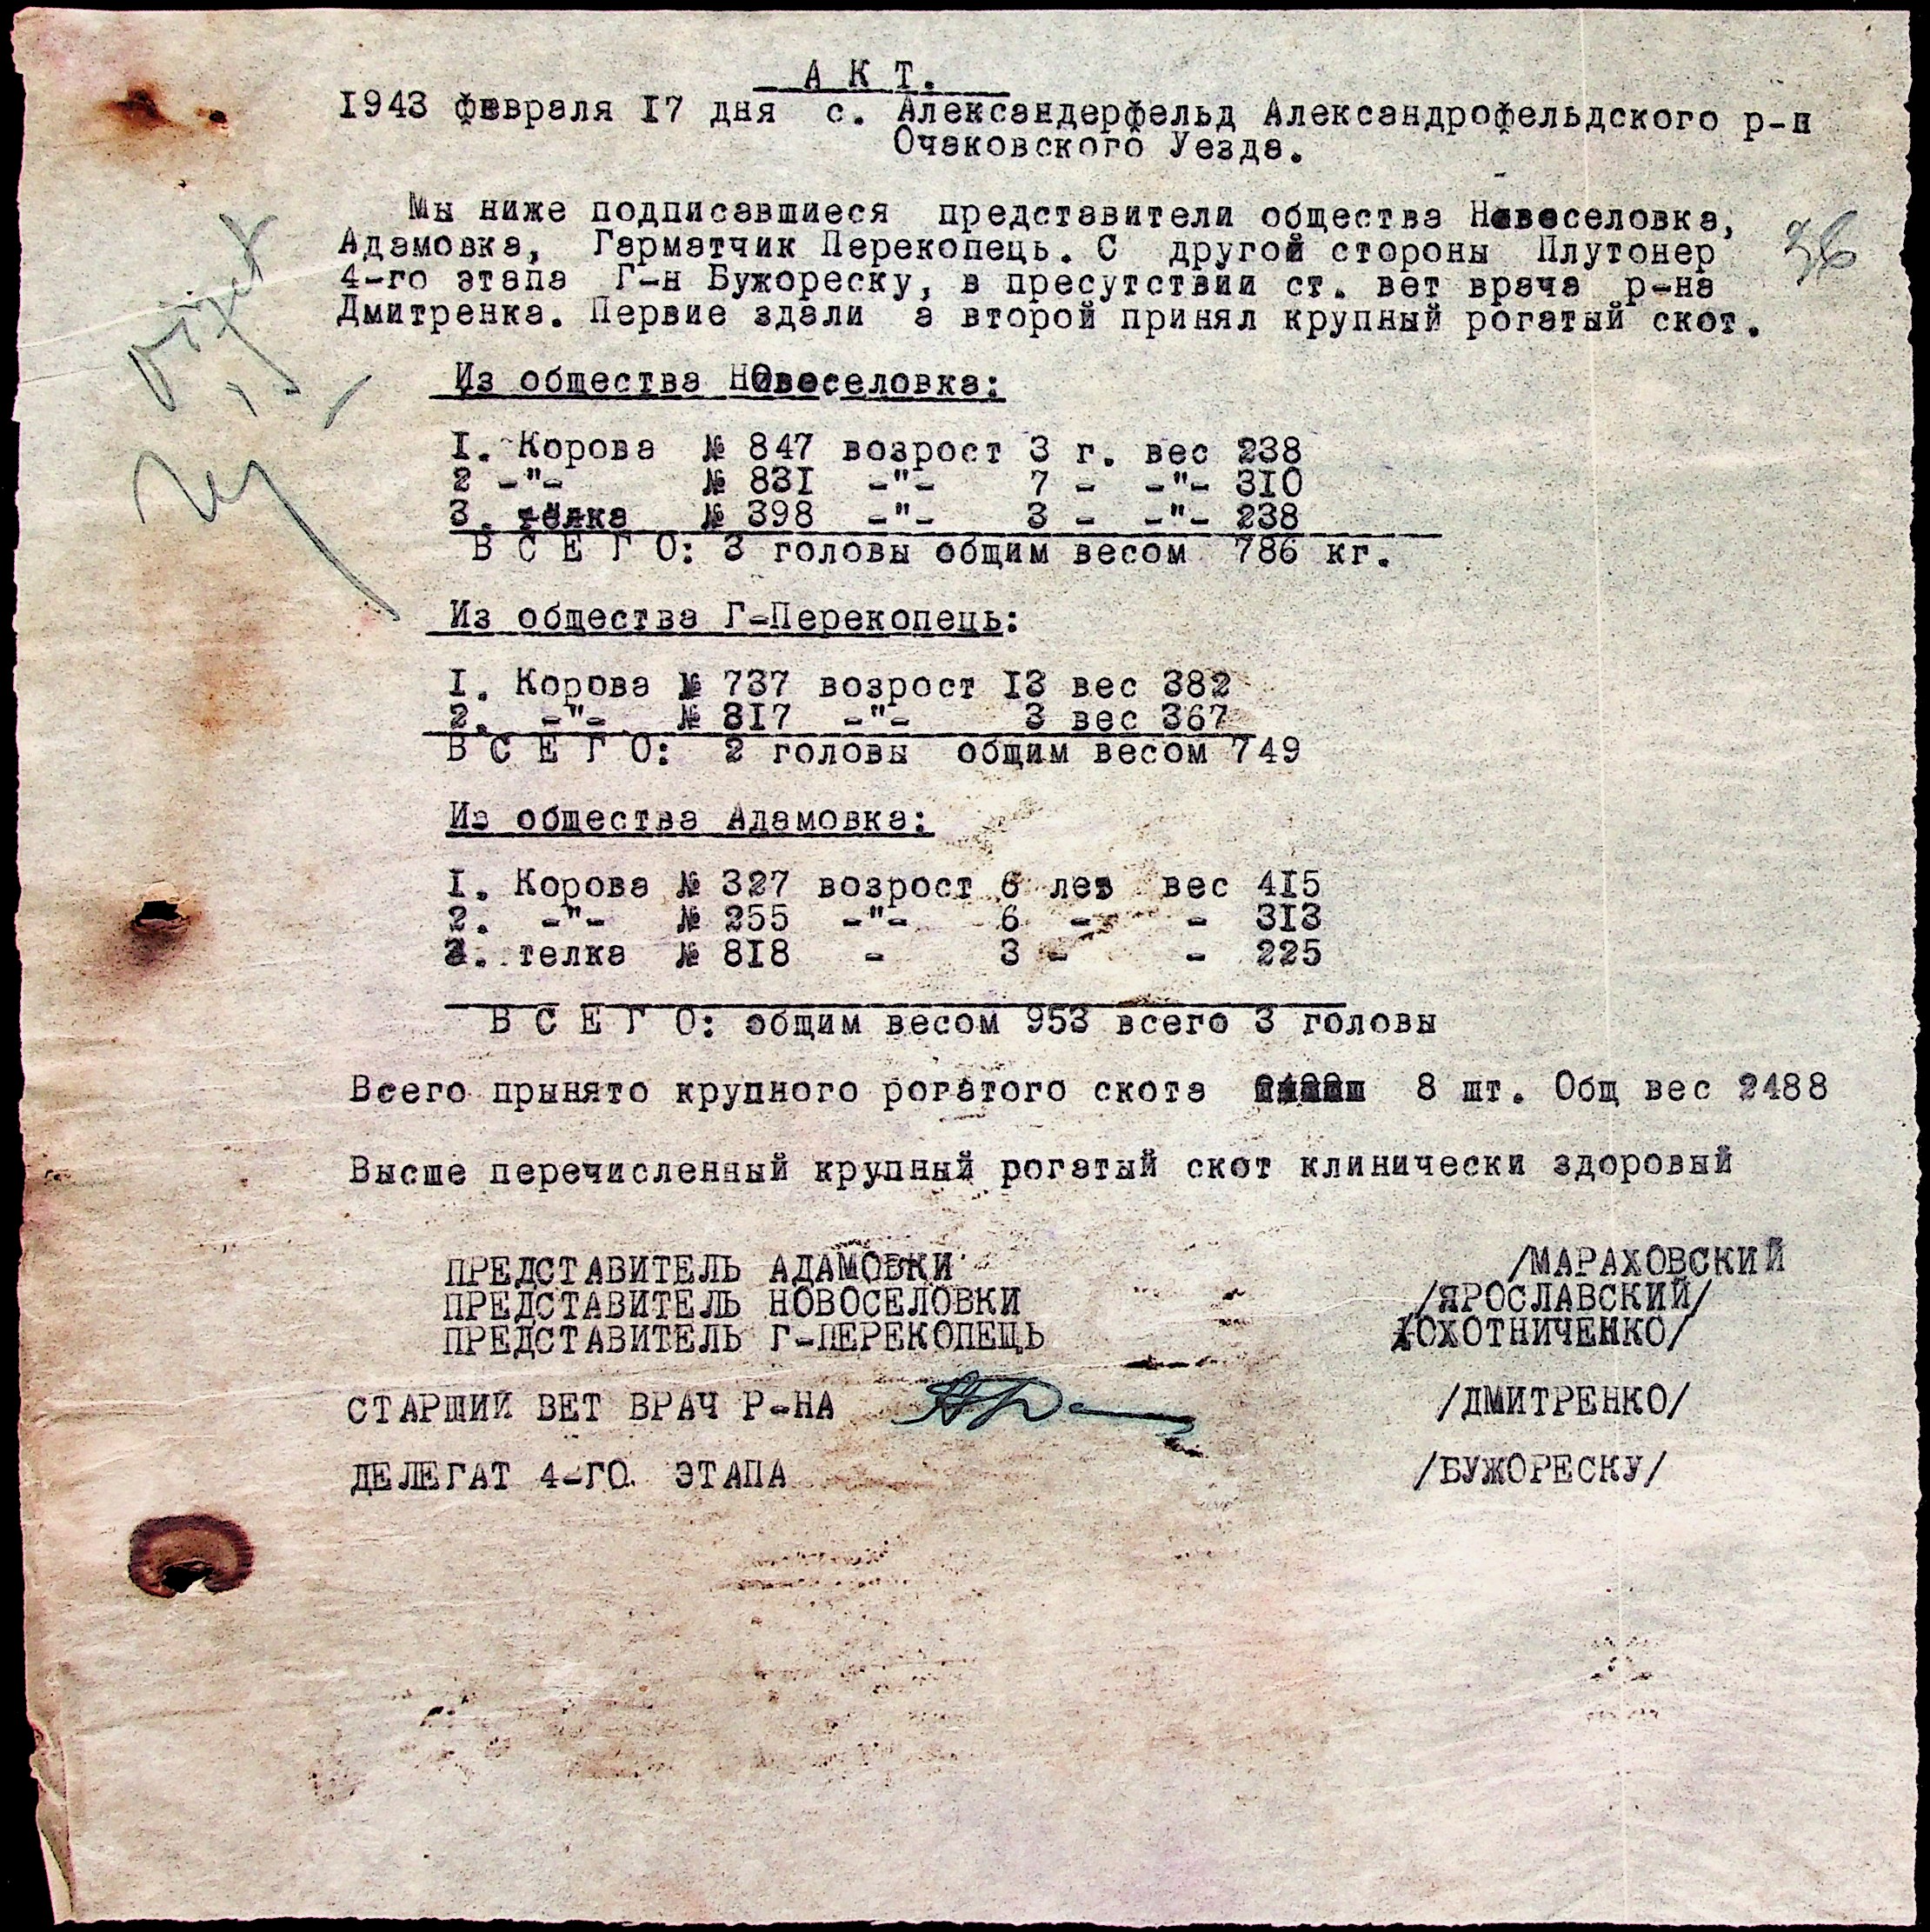 А К Т.
1943 февраля 17 дня с. Александерфельд Александрофельдского р-н
Очаковского Уезда.
36
Мы ниже подписавшиеся представители общества Новоселовка,
Адамовка, Гарматчик Перекопець. С другой стороны Плутонер
4-го этапа Г-н Бужореску, в пресутствии ст. вет врача р-на
Дмитренка. Первие здали а второй принял крупный рогатый скот.
Из общества НОвоселовка:
1. Корова № 847 возрост 3 г. вес 238
2 -"- № 831 -"- 7 - -"- 310
3. тёлка № 398 -"- 3 - -"- 238
В С Е Г О: 3 головы общим весом 786 кг.
Из общества Г-Перекопець:
1. Корова № 737 возрост 13 вес 382
2. -"- № 817 -"- 3 вес 367
В С Е Г О: 2 головы общим весом 749
Из общества Адамовка:
1. Корова № 327 возрост 6 лет вес 415
2. -"- № 255 -"- 6 - - 313
3. телка № 818 - 3 - - 225
В С Е Г О: общим весом 953 всего 3 головы
Всего прынято крупного рогатого скота 8 шт. Общ вес 2488
Высше перечисленный крупный рогатый скот клинически здоровый
ПРЕДСТАВИТЕЛЬ АДАМОВКИ /МАРАХОВСКИЙ
ПРЕДСТАВИТЕЛЬ НОВОСЕЛОВКИ /ЯРОСЛАВСКИЙ/
ПРЕДСТАВИТЕЛЬ Г-ПЕРЕКОПЕЦЬ /ОХОТНИЧЕНКО/
СТАРШИЙ ВЕТ ВРАЧ Р-НА /ДМИТРЕНКО/
ДЕЛЕГАТ 4-ГО. ЭТАПА /БУЖОРЕСКУ/